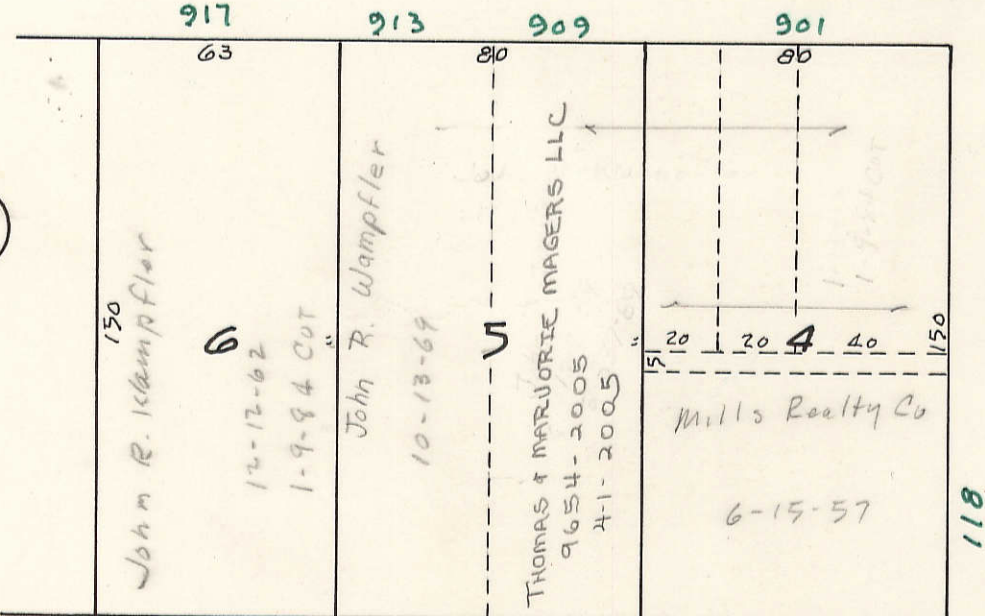 917 913 909 901
63 80 80
150
John R. Klampfler
6
12-12-62
1-9-84 CUT
"
John R. Wampfler
10-13-69
5
THOMAS & MARJORIE MAGERS LLC
9654-2005
4-1-2005
"
1-9-84 CUT
20 20 4 40
150
5
Mills Realty Co
6-15-57
118